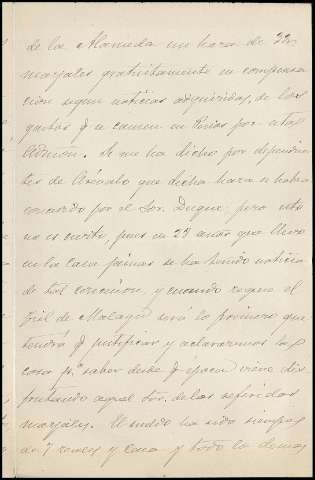 de la Alameda un haza de 22
marjales gratuitamente en compensa
cion segun noticias adquiridas, de los
gastos q se causen en por esta
Admon. Se me ha dicho por dependien
tes de Arévalo que dicha haza se habia
concedido por el Sor. Duque; pero esto
no es cierto, pues en 23 años que llevo
en la Casa jamas se ha tenido noticia
de tal concesion, y cuando regrese el
Gral de Malaga será lo primero que
tendrá q justificar y aclararemos la
cosa pª saber desde q epoca viene dis
frutando aquel Sor. de los referidos
marjales. El sueldo ha sido siempre
de 7 reales y casa y todo lo demas